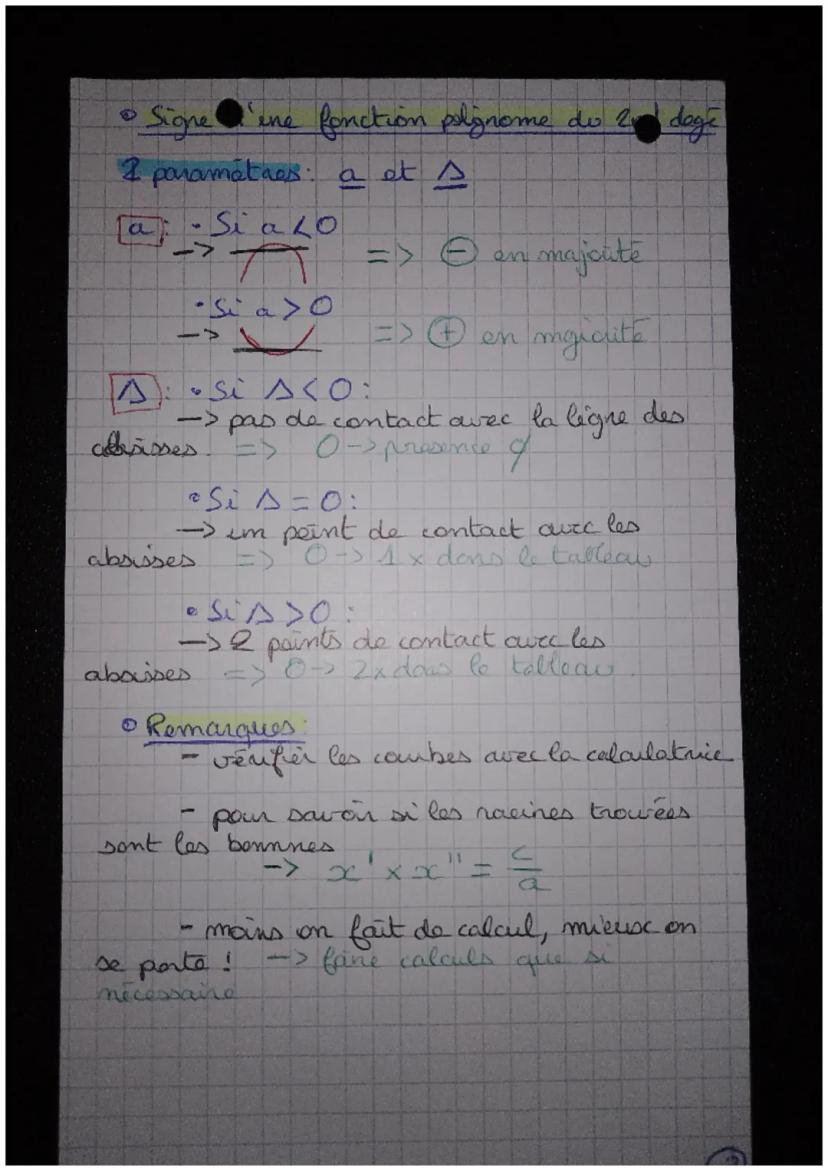 Signe d'une fonction polynome du 2nd degé
2 paramètres : a et Δ
a : • Si a < 0
-> => ⊖ en majorité
• Si a > 0
-> => ⊕ en majorité
Δ : • Si Δ < 0 :
-> pas de contact avec la ligne des
absisses. => 0 -> presence ∅
• Si Δ = 0 :
-> un point de contact avec les
absisses => 0 -> 1 x dans le tableau
• Si Δ > 0 :
-> 2 points de contact avec les
absisses => 0 -> 2x dans le tableau.
Remarques :
- vérifier les courbes avec la calculatrice
- pour savoir si les racines trouvées
sont les bonnes
-> x' × x'' = c/a
- moins on fait de calcul, mieux on
se porte ! -> faire calculs que si
nécessaire